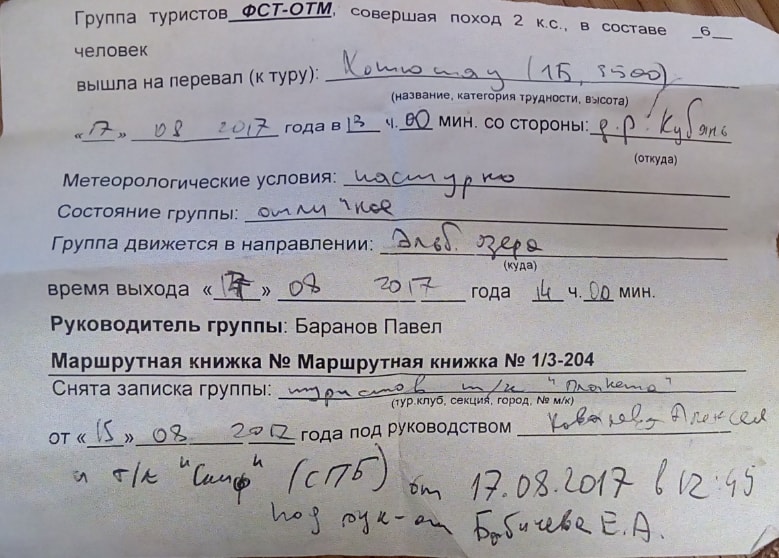 Группа туристов ФСТ-ОТМ, совершая поход 2 к.с., в составе 6
человек
вышла на перевал (к туру): Хотютау (1Б, 3500)
(название, категория трудности, высота)
«17» 08 2017 года в 13 ч. 00 мин. со стороны: д.р. Кубань
(откуда)
Метеорологические условия: пасмурно
Состояние группы: отличное
Группа движется в направлении: Эльб. озера
(куда)
время выхода «17» 08 2017 года 14 ч. 00 мин.
Руководитель группы: Баранов Павел
Маршрутная книжка № Маршрутная книжка № 1/3-204
Снята записка группы: туристов т/к "Планета"
(тур.клуб, секция, город, № м/к)
от «15» 08. 2017 года под руководством Ковалева Алексея
и т/к "Скиф" (СПБ) от 17.08.2017 в 12:45
под рук-ом Бабичева Е.А.